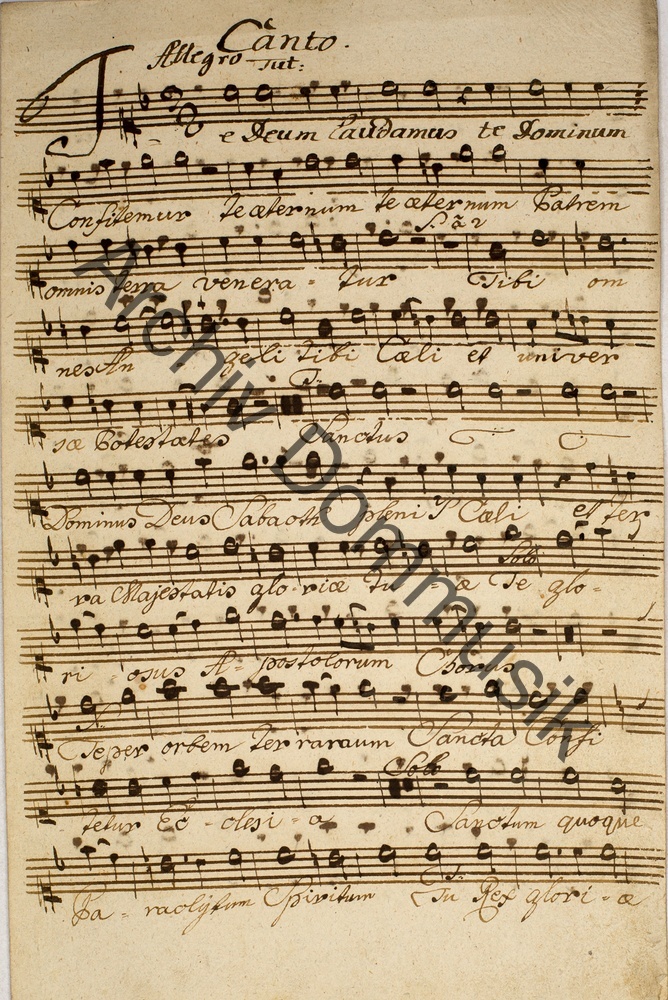 Canto.
Allegro Tut:
Te Deum Laudamus te Dominum
Confitemur te æternum te æternum Patrem
S. à 2
omnis terra venera - tur Tibi om
nes An geli tibi Cæli et univer
T.
sæ Potestates Sanctus
Dominus Deus Sabaoth pleni S Cæli et ter
Solo
ra Majestatis glo riæ tu - æ Te glo -
ri - osus A - postolorum Chorus
T.
Te per orbem ter raraum Sancta Confi
Solo
tetur Ec - clesi - a Sanctum quoque
T.
Pa - raclytum Spiritum Tu Rex glori - æ
Archiv Dommusik